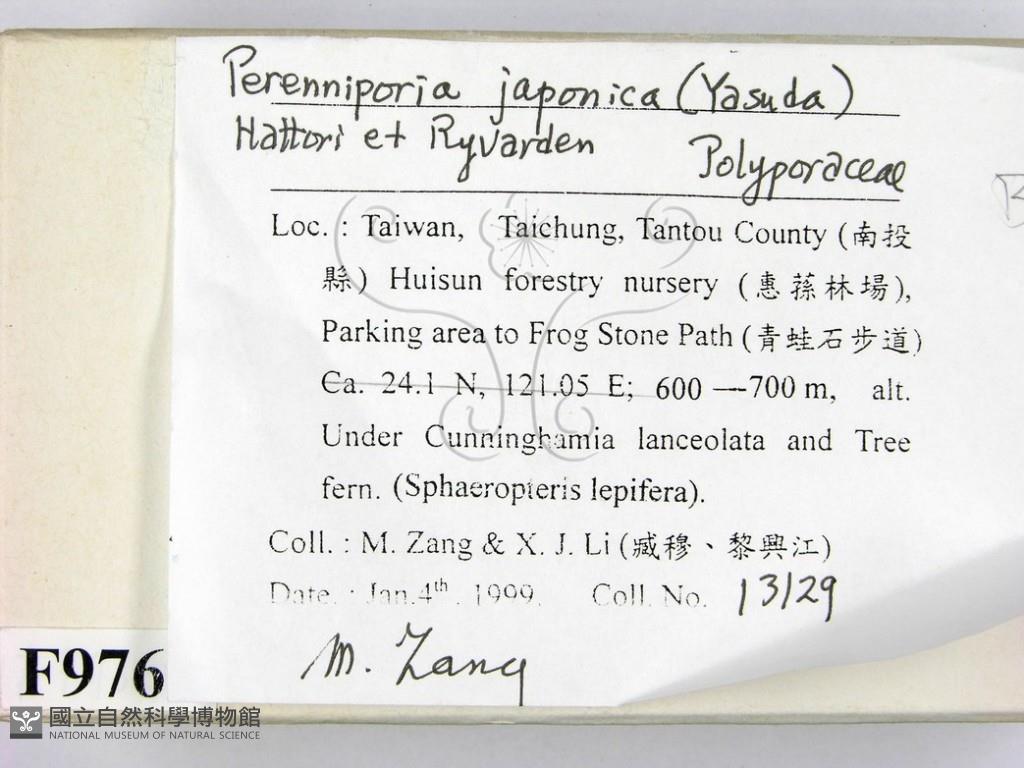 Perenniporia japonica (Yasuda)
Hattori et Ryvarden Polyporaceae
Loc. : Taiwan, Taichung, Tantou County (南投
縣) Huisun forestry nursery (惠蓀林場),
Parking area to Frog Stone Path (青蛙石步道)
Ca. 24.1 N, 121.05 E; 600 —700 m, alt.
Under Cunninghamia lanceolata and Tree
fern. (Sphaeropteris lepifera).
Coll. : M. Zang & X. J. Li (臧穆、黎興江)
Date. : Jan.4th. 1999. Coll. No. 13129
M. Zang
F976
國立自然科學博物館
NATIONAL MUSEUM OF NATURAL SCIENCE